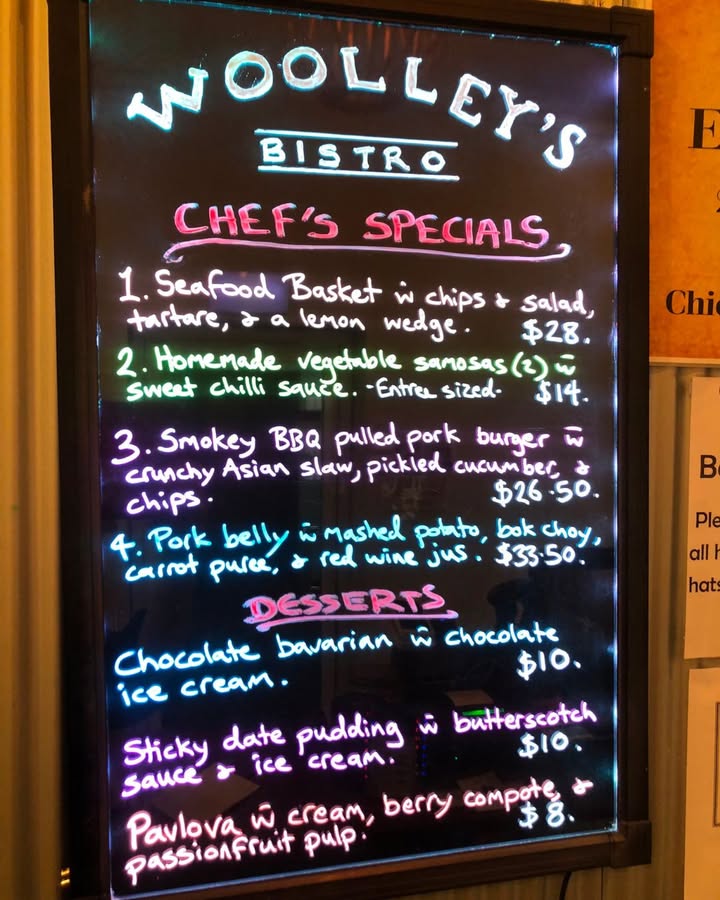 WOOLLEY'S
BISTRO
CHEF'S SPECIALS
1. Seafood Basket w̄ chips & salad,
tartare, & a lemon wedge. $28.
2. Homemade vegetable samosas (2) w̄
sweet chilli sauce. -Entree sized- $14.
3. Smokey BBQ pulled pork burger w̄
crunchy Asian slaw, pickled cucumber, &
chips. $26.50.
4. Pork belly w̄ mashed potato, bok choy,
carrot puree, & red wine jus. $33.50.
DESSERTS
Chocolate bavarian w̄ chocolate
ice cream. $10.
Sticky date pudding w̄ butterscotch
sauce & ice cream. $10.
Pavlova w̄ cream, berry compote, &
passionfruit pulp. $8.
all